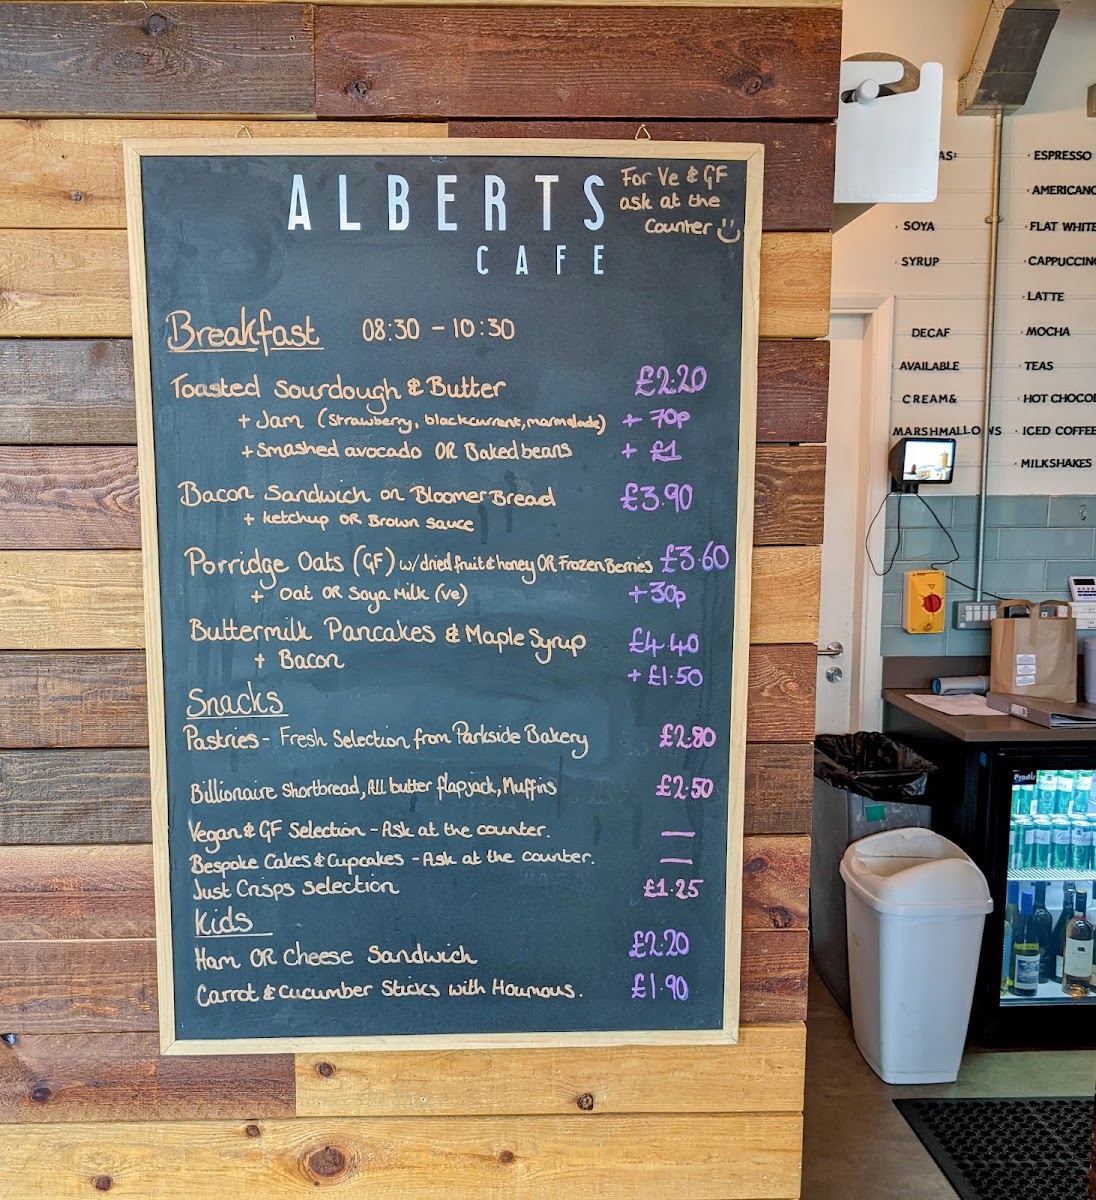 ALBERTS
CAFE
For Ve & GF
ask at the
Counter
Breakfast 08:30 - 10:30
Toasted Sourdough & Butter £2.20
+ Jam (strawberry, blackcurrent, marmalade) + 70p
+ Smashed avocado OR Baked beans + £1
Bacon Sandwich on Bloomer Bread £3.90
+ ketchup OR Brown sauce
Porridge Oats (GF) w/ dried fruit & honey OR Frozen Berries £3.60
+ Oat OR Soya Milk (ve) +30p
Buttermilk Pancakes & Maple Syrup £4.40
+ Bacon +£1.50
Snacks
Pastries - Fresh Selection from Parkside Bakery £2.80
Billionaire shortbread, All butter flapjack, Muffins £2.50
Vegan & GF Selection - Ask at the counter. —
Bespoke Cakes & Cupcakes - Ask at the counter. —
Just Crisps selection £1.25
Kids
Ham OR Cheese Sandwich £2.20
Carrot & cucumber Sticks with Houmous. £1.90
· SOYA
· SYRUP
DECAF
AVAILABLE
CREAM &
MARSHMALLOWS
· ESPRESSO
· AMERICANO
· FLAT WHITE
· CAPPUCCINO
· LATTE
· MOCHA
· TEAS
· HOT CHOCOL
· ICED COFFEE
· MILKSHAKES